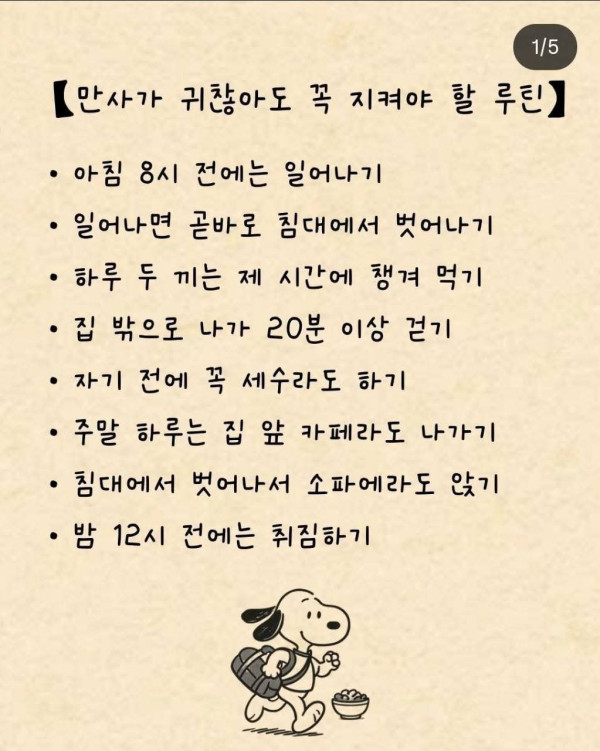 1/5
【만사가 귀찮아도 꼭 지켜야 할 루틴】
• 아침 8시 전에는 일어나기
• 일어나면 곧바로 침대에서 벗어나기
• 하루 두 끼는 제 시간에 챙겨 먹기
• 집 밖으로 나가 20분 이상 걷기
• 자기 전에 꼭 세수라도 하기
• 주말 하루는 집 앞 카페라도 나가기
• 침대에서 벗어나서 소파에라도 앉기
• 밤 12시 전에는 취짐하기